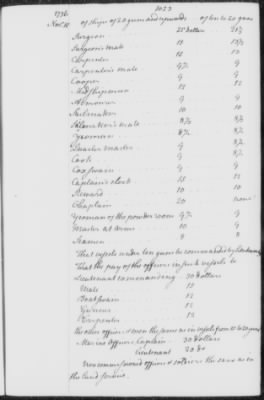 1023
1776
Nov. 15 of ships of 20 guns and upwards of 10 to 20 guns
Surgeon 25 Dollars 21⅔
Surgeon's mate 15 13⅓
Carpenter 15 12
Carpenter's mate 9½ 9
Cooper 9 9
Midshipmen 12 12
Armourer 9 9
Sailmaker 10 10
Sailmaker's mate 8½ 8½
Yeoman 8½ 8½
Quarter master 9 8½
Cook 9 8½
Coxswain 9 9
Captain's clerk 15 12
Steward 10 10
Chaplain 20 none
Yeoman of the powder room 9½ 9
Master at Arms 10 9
Seamen 8 8
That vessels under ten guns be commanded by lieutenants
That the pay of the officers in such vessels be
Lieutenant commanding 30 Dollars
Mate 15
Boatswain 12
Gunner 12
Carpenter 12
the other officers & men the same as in vessels from 10 to 20 guns
Marine Officers, Captain 30 Dollars
Lieutenant 20 Do
Non commissioned officers & soldiers the same as in
the land service.